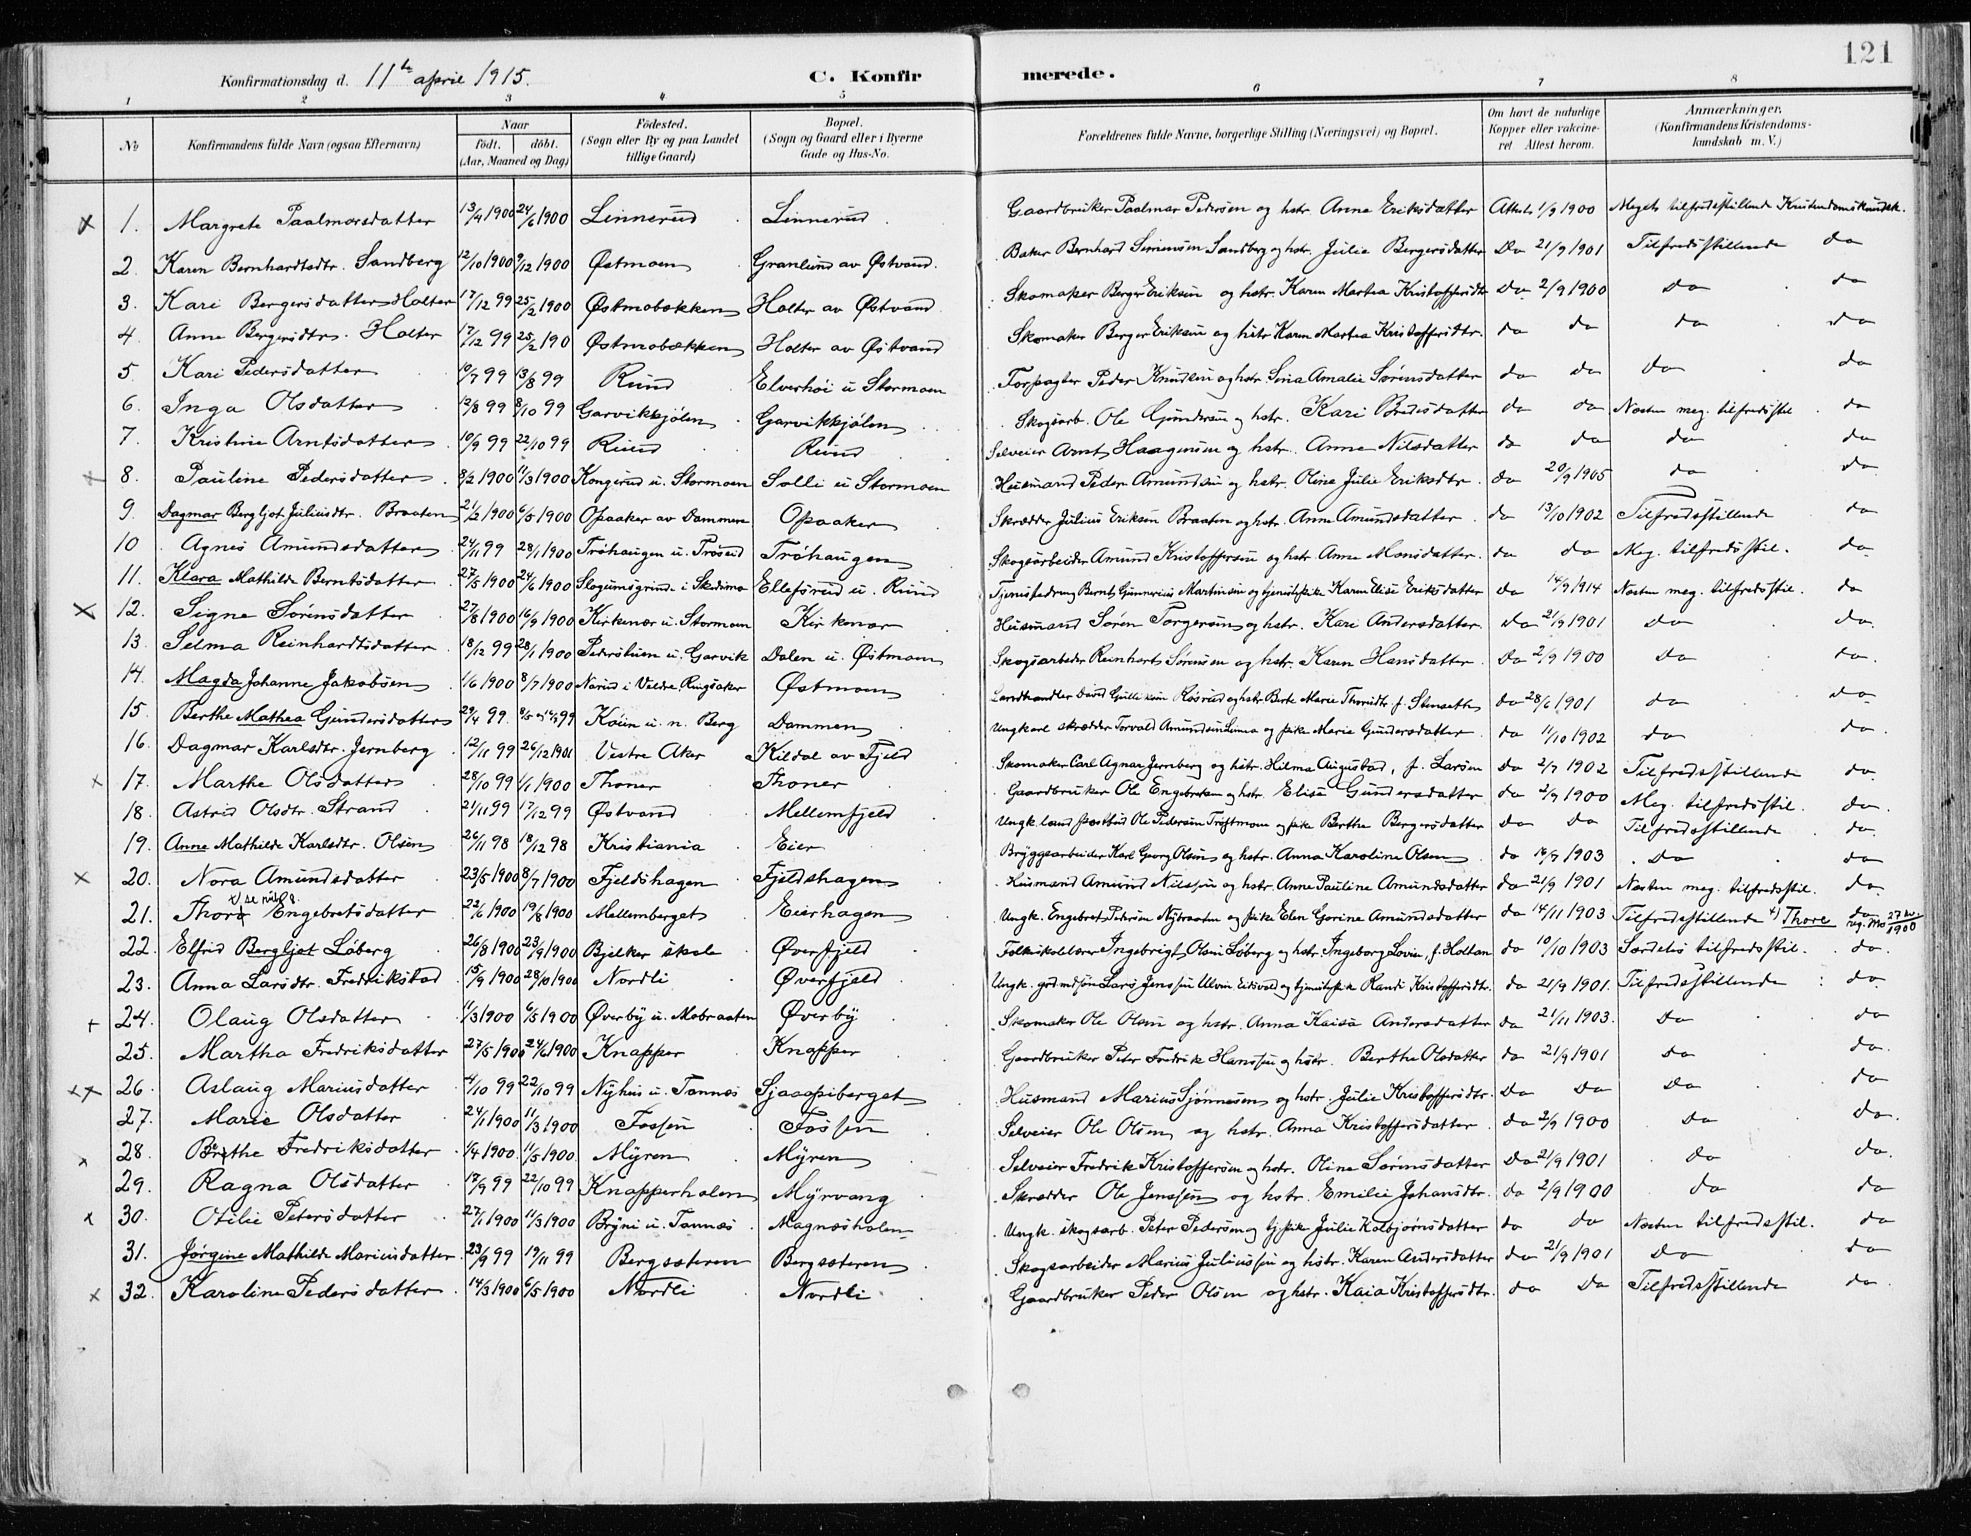 121
Konfirmationsdag d. 11te april 1915. C. Konfirmerede.
1 2 3 4 5 6 7 8
No Konfirmandens fulde Navn (ogsaa Efternavn) Naar födt. döbt. (Aar, Maaned og Dag) Födested. (Sogn eller By og paa Landet tillige Gaard) Bopæl. (Sogn og Gaard eller i Byerne Gade og Hus-No. Forældrenes fulde Navne, borgerlige Stilling (Næringsvei) og Bopæl. Om havt de naturlige Kopper eller vakcineret Attest herom. Anmærkninger. (Konfirmandens Kristendomskundskab m. V.)
x 1. Margrete Paalmarsdatter 13/4 1900 24/6 1900 Linnerud Linnerud Gaardbruker Paalmar Pedersen og hstr. Anne Eriksdatter Attest 1/9 1900 Meget tilfredsstillende Kristendomskundsk.
2 Karen Bernhardtsdtr. Sandberg 12/10 1900 9/12 1900 Østmoen Granlund av Østvand. Baker Bernhard Sörensen Sandberg og hstr. Julie Bergersdatter Do 21/9 1901 Tilfredsstillende do
3. Kari Bergersdatter Holter 17/12 99 25/2 1900 Østmobækken Holter av Østvand Skomaker Berger Eriksen og hstr. Karen Martea Kristoffersdtr Do 2/9 1900 Do do
4 Anne Bergersdtr. Holter 17/12 99 25/2 190 Østmobækken Holter av Østvand Skomaker Berger Eriksen og hstr Karen Martea Kristoffersdtr. do do do do
5. Kari Pedersdatter 10/7 99 13/8 99 Ruud Elverhöi u Stormoen Forpagter Peder Knudsen og hstr. Sina Amalie Sörensdatter do do do do
6. Inga Olsdatter 12/8 99 8/10 99 Garvikkjølen Garvikkjølen Skogsarb. Ole Gundersen og hstr. Kari Bredesdatter do do Næsten meg. tilfredsstil do
7. Kristine Arntsdatter 10/9 99 22/10 99 Ruud Ruud Selveier Arnt Haagensen og hstr. Anne Nilsdatter do do do do
+ 8. Pauline Pedersdatter 8/2 1900 11/3 1900 Kongerud u. Stormoen Solli u Stormoen Husmand Peder Amundsen og hstr. Oline Julie Eriksdtr. do 20/9 1905 do do
9. Dagmar Bergljot Juliusdtr. Braaten 21/2 1900 6/5 1900 Opaaker av Dammen Opaaker Skrædder Julius Eriksen Braaten og hstr. Anne Amundsdatter do 13/10 1902 Tilfredsstillende do
10 Agnes Amundsdatter 24/11 99 28/1 1900 Tröhaugen u. Tröseid Tröhaugen Skogsarbeider Amund Kristoffersen og hstr Anne Monsdatter. do do Meg. tilfredsstil. do
11. Klara Mathilde Berntsdatter 27/5 1900 24/6 1900 Slogumsgrind i Skedsmo Ellefsrud u. Ruud Tjenestedreng Bernt Gunnerius Martinsen og tjenestepike Karen Elise Eriksdatter do 14/9 1914 Næsten meg. tilfredsstil. do
X 12. Signe Sörensdatter 27/8 1900 16/9 1900 Kirkenær u. Stormoen Kirkenær Husmand Sören Torgersen og hstr. Kari Andersdatter do 21/9 1901 do do
13. Selma Reinhardtsdatter 18/12 99 28/1 1900 Pedersluen u. Garvik Dalen u. Østmoen Skogsarbeder Reinhart Sörensen og hstr. Karen Hansdatter Do 2/9 1900 Do do
14. Magda Johanne Jakobsen 1/6 1900 8/7 1900 Narud i Veldre, Ringsaker Østmoen do 28/6 1901 do do
15. Berthe Mathea Gundersdatter 29/4 99 Koien u. n. Berg Dammen Ungkarl skrædder Torvald Amundsen Linna og pike Marie Gundersdatter do 11/10 1902 do do
16. Dagmar Karlsdtr. Jernberg 12/11 99 26/12 1901 Vestre Aker Kildal av Fjeld Skomaker Carl Agnar Jernberg og hstr. Hilma Augustad, f. Larsen Do 2/7 1902 Tilfredsstillende do
x 17. Marthe Olsdatter 28/10 99 1/1 1900 Thoner Thoner Gaardbruker Ole Engebretsen og hstr. Elise Gundersdatter do 2/9 1900 Meg. tilfredsstil. do
18. Astrid Olsdtr. Strand 21/11 99 17/12 99 Østvand Mellemfjeld Ungk. land postbud Ole Pedersen Tröftmoen og pike Berthe Bergersdatter do do Tilfredsstillende do
19. Anne Mathilde Karlsdtr. Olsen 26/11 98 18/12 98 Kristiania Eier Bryggearbeider Karl Georg Olsen og hstr. Anna Karoline Olsen do 16/9 1903 Do do
x 20. Nora Amundsdatter 23/5 1900 8/7 1900 Fjeldshagen Fjeldshagen Husmand Amund Nilssen og hstr. Anne Pauline Amundsdatter do 21/9 1901 Næsten meg. tilfredsstil. do
21. Thora Engebretsdatter 22/6 1900 19/8 1900 Mellemberget Eierhagen Ungk. Engebret Petersen Nybraaten og pike Elen Gorine Amundsdatter do 14/11 1903 Tilfredsstillende +) Thore do
22. Elfrid Bergljot Löberg 26/8 1900 23/9 1900 Bjelker skole Øverfjeld Folkeskolelærer Ingebrigt Olsen Löberg og hstr. Ingeborg Lovise, f. Holtan do 10/10 1903 Særdeles tilfredsstil. do.
23. Anna Larsdtr. Fredrikstad 15/9 1900 28/10 1900 Nordli Øverfjeld Ungk. grdmdsön Lars Jenssen Ulvin Eidsvold og tjenestepike Randi Kristoffersdtr. do 21/9 1901. Tilfredsstillende do
+ 24. Olaug Olsdatter 11/3 1900 6/5 1900 Øverby u. Mobraaten Øverby Skomaker Ole Olsen og hstr. Anna Kaisa Andersdatter do 21/11 1903. Do do
25. Martha Fredriksdatter 27/5 1900 24/6 1900 Knapper Knapper Gaardbruker Peter Fredrik Hanssen og hstr. Berthe Olsdatter do 21/9 1901 Do do.
xx 26. Aslaug Mariusdatter 4/10 99 22/10 99 Nyhus u. Tannæs Sjaapiberget Husmand Marius Sjønnesen og hstr. Julie Kristoffersdtr. do Do Do do
27. Marie Olsdatter 24/1 1900 11/3 1900 Fossen Fossen Selveier Ole Olsen og hstr. Anna Kristoffersdatter do 2/9 1900 Do do.
x 28. Berthe Fredriksdatter 1/4 1900. 11/5 1900. Myren Myren Selveier Fredrik Kristoffersen og hstr. Oline Sörensdatter Do 21/9 1901 Do do.
29. Ragna Olsdatter 17/9 99 22/10 99 Knapperholen Myrvang Skrædder Ole Jenssen og hstr. Emilie Johansdtr. do 2/9 1900 Do do
x 30. Otilie Petersdatter 27/1 1900 11/3 1900 Bryni u. Tannæs Magnæsholen Ungk. skogsarb. Peter Pedersen og tj. pike Julie Kolbjørnsdatter do do Næsten tilfredsstil. do
31. Jørgine Mathilde Mariusdatter 23/9 99 19/11 99 Bergsæteren Bergsæteren Skogsarbeider Marius Juliussen og hstr. Karen Andersdatter do 21/9 1901 Do do
x 32. Karoline Pedersdatter 14/3 1900 6/5 1900 Nordli Nordli Gaardbruker Peder Olsen og hstr. Kaia Kristoffersdtr. do Do Tilfredsstillende do.